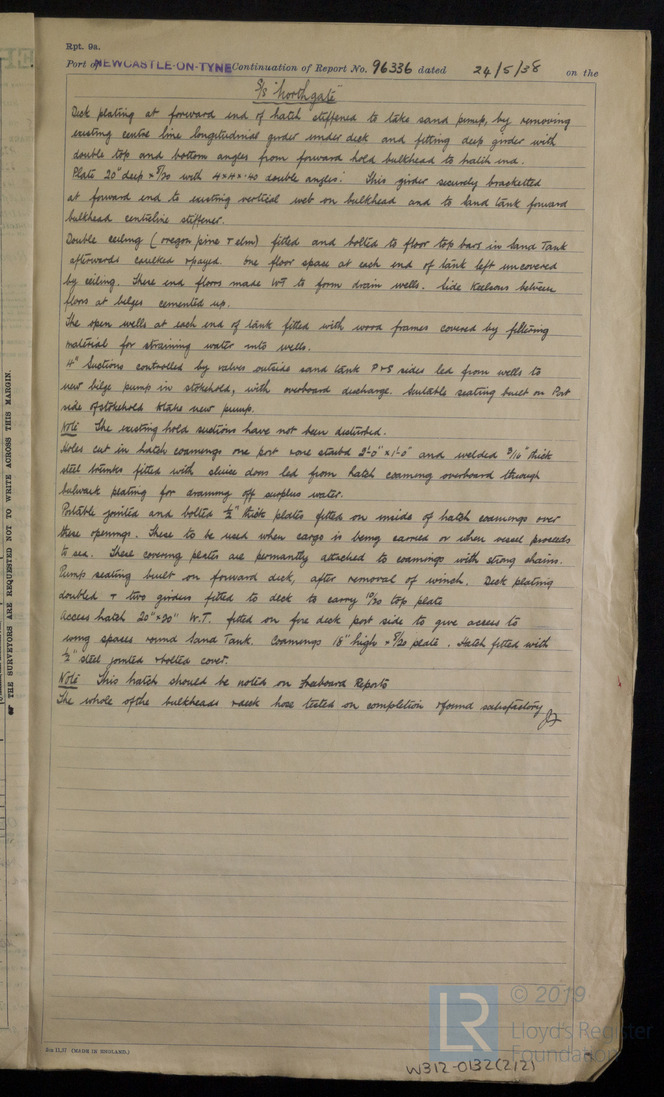 Rpt. 9a.
Port of NEWCASTLE-ON-TYNE Continuation of Report No. 96336 dated 24/5/38 on the
S/S "Northgate"
Deck plating at forward end of hatch stiffened to take sand pump, by removing
existing centre line longitudinal girder under deck and fitting deep girder with
double top and bottom angles from forward hold bulkhead to hatch end.
Plate 20" deep × 8/20 with 4×4×.40 double angles. This girder securely bracketted
at forward end to existing vertical web on bulkhead and to sand tank forward
bulkhead centreline stiffener.
Double ceiling (oregon pine & elm) fitted and bolted to floor top bars in sand Tank
afterwards caulked & payed. One floor space at each end of tank left uncovered
by ceiling. These end floors made WT to form drain wells. Side Keelsons between
floors at bilges cemented up.
The open wells at each end of tank fitted with wood frames covered by filtering
material for straining water into wells.
4" Suctions controlled by valves outside sand tank P & S sides led from wells to
new bilge pump in stokehold, with overboard discharge. Suitable seating built on Port
side of stokehold to take new pump.
Note The existing hold suctions have not been disturbed.
Holes cut in hatch coamings one port & one starbd 2'-0" × 1'-0" and welded 5/16" thick
steel trunks fitted with sluice doors led from hatch coaming overboard through
bulwark plating for draining off surplus water.
Portable jointed and bolted 1/2" thick plates fitted on inside of hatch coamings over
these openings. These to be used when cargo is being carried or when vessel proceeds
to sea. These covering plates are permantly attached to coamings with strong chains.
Pump seating built on forward deck, after removal of winch. Deck plating
doubled & two girders fitted to deck to carry 10/20 top plate
Access hatch 20"×30" W.T. fitted on fore deck port side to give access to
wing spaces round sand Tank. Coamings 18" high × 8/20 plate. Hatch fitted with
1/2" steel jointed & bolted cover.
Note This hatch should be noted on Freeboard Reports
The whole of the bulkheads & deck hose tested on completion & found satisfactory
OF THE SURVEYORS ARE REQUESTED NOT TO WRITE ACROSS THIS MARGIN.
(MADE IN ENGLAND.)
LR
© 2019
Lloyd's Register
Foundation
W312-0132(2/2)